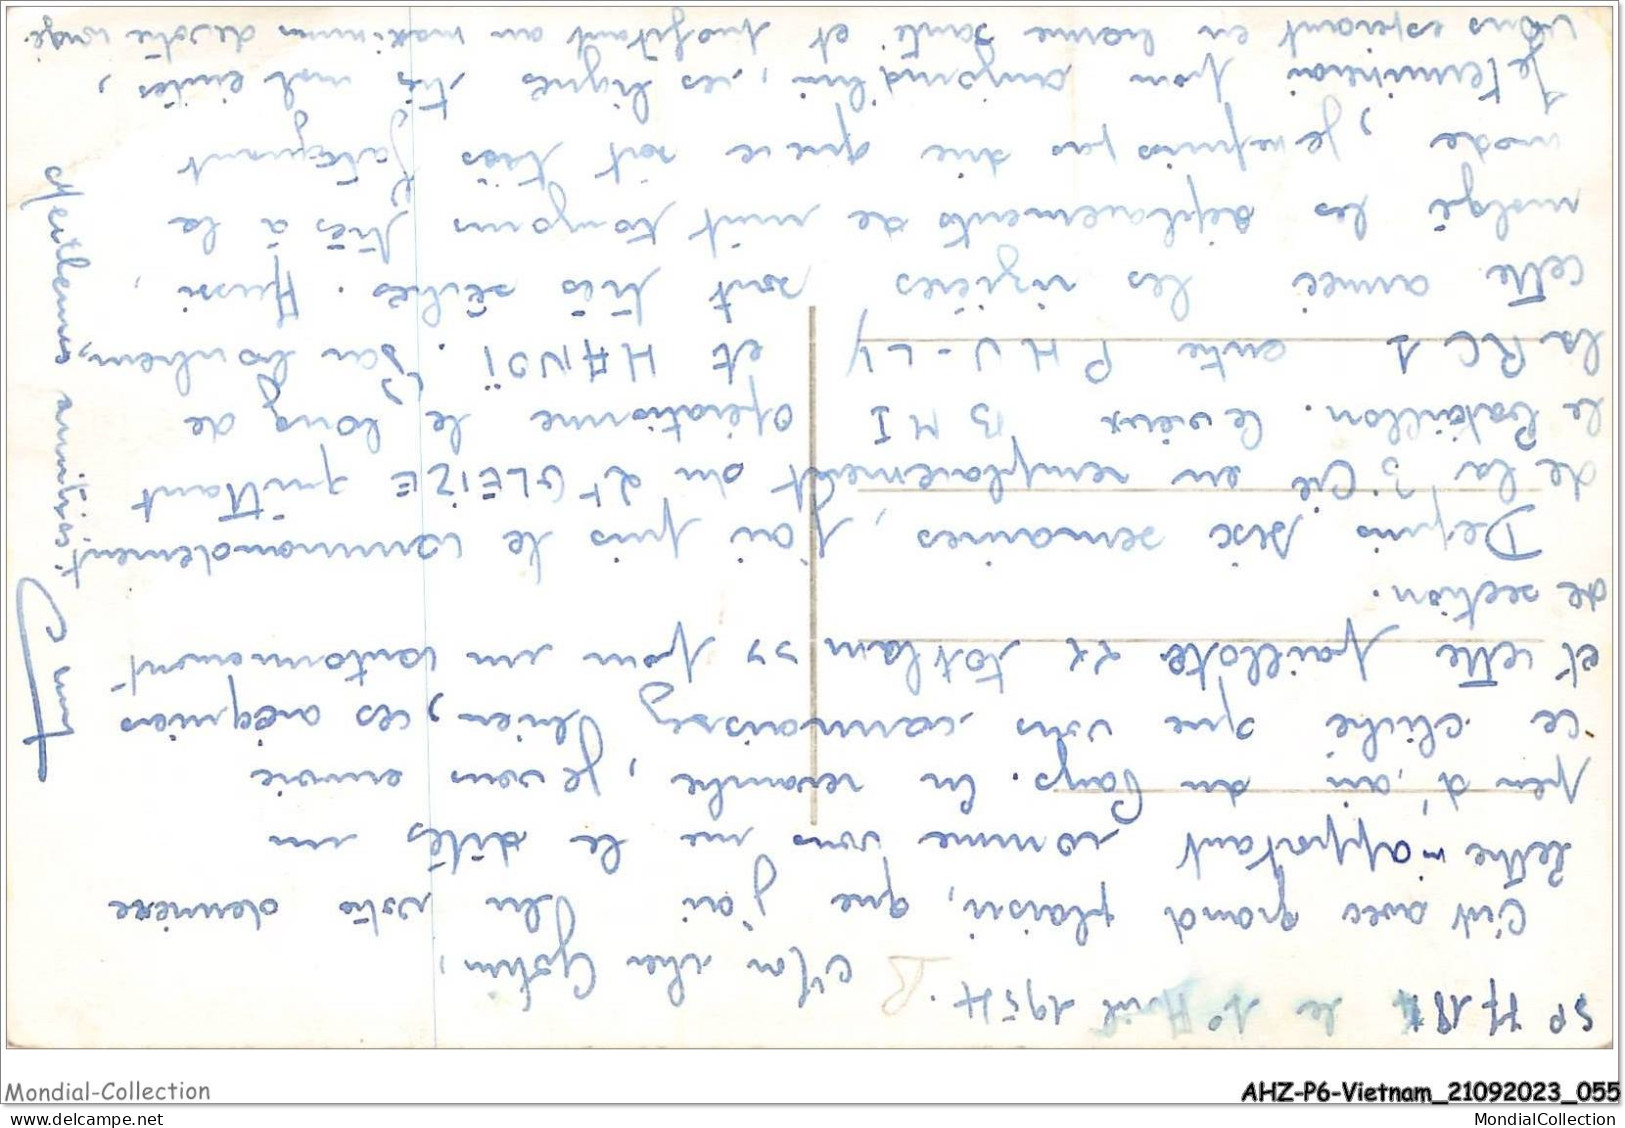 SP 77.184 le 1° Avril 1954.
Mon cher
C'est avec grand plaisir, que j'ai lu votre dernière
lettre m'apportant comme vous me le dites un
peu d'air du Pays. En revanche, je vous envoie
ce cliché que vous connaissez bien, ces aréquiers
et cette paillote << >> pour un cantonnement
de section.
Depuis six semaines, j'ai pris le commandement
de la 3° Cie en remplacement du Lt GLEIZE quittant
le Bataillon. Le vieux BMI opérationne le long de
la RC 1 entre PHU-LY et HANOÏ. Par bonheur,
cette année les rizières sont très sèches. Aussi,
malgé les déplacements de nuit toujours très à la
mode, je ne puis pas dire que ce soit très fatiguant
Je terminerai pour aujourd'hui, ces lignes très mal écrites,
Vous espérant en bonne santé et profitant au maximum de votre congé.
Meilleures amitiés
Mondial-Collection
AHZ-P6-Vietnam_21092023_055
Copyright website
MondialCollection